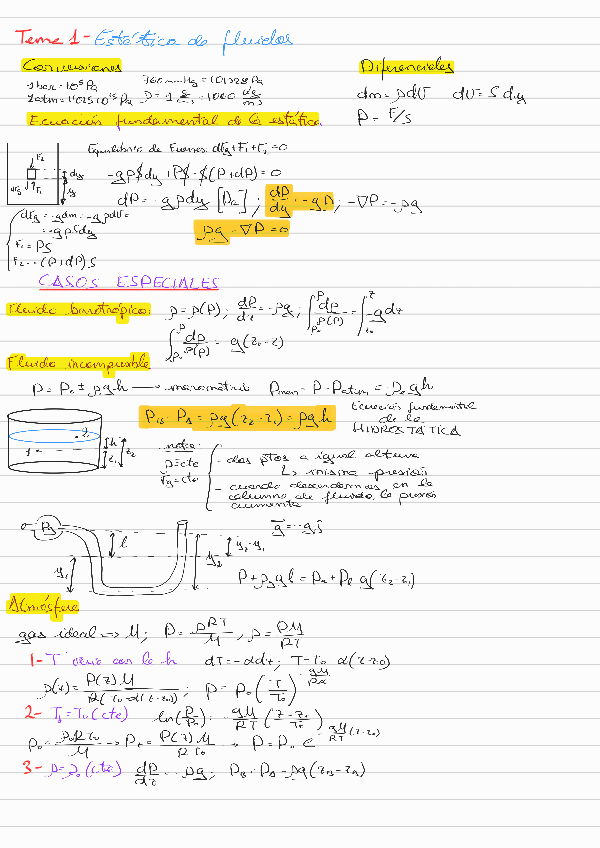 Tema 1 - Estática de fluidos
Conversiones
Diferenciales
1 bar = 10⁵ Pa
760 mmHg = 101325 Pa
1 atm = 1'01325·10⁵ Pa
ρ = 1 = 1000 kg/m³
dm = ρdV
dV = S dy
P = F/S
Ecuación fundamental de la estática
Equilibrio de Fuerzas: dFg + F1 + F2 = 0
-gρ$dy + P$ - $(P+dP) = 0
F2
dy
dFg
F1
y
dP = -gρdy [Pa] ; dP/dy = -gρ ; -∇P = -ρg
dFg = -gdm = -gρdV =
= -gρSdy
F1 = PS
F2 = -(P+dP)S
ρg - ∇P = 0
CASOS ESPECIALES
Fluido barotrópico: ρ = ρ(P) ; dP/dz = -ρg ; ∫ dP/ρ(P) = ∫ -gdz
∫ dp/ρ(P) = g(z0 - z)
Fluido incompresible
P = Pa ± ρgh → manométrica Pman = P - Patm = ρgh
PB - PA = ρg(z2 - z1) = ρgh
Ecuación fundamental
de la
HIDROSTÁTICA
nota:
ρ = cte
- dos ptos a igual altura
↳ misma presión
- cuando descendemos en la
columna de fluido, la presión
aumenta
h
z1
z2
g = -gj
l
y1
y2
y2 - y1
Atmósfera
gas ideal → M ; P = ρRT/M , ρ = PM/RT
1- T varía con la h dT = -αdz ; T = T0 - α(z-z0)
ρ(z) = P(z)M / R(T0 - α(z-z0)) ; P = P0 (T/T0)^(gM/Rα)
2- T = T0 (cte) ln(P/P0) =
P = P0 e^(-gM/RT (z-z0))
3- ρ = ρ0 (cte) dP/dz = -ρg ; PB - PA = -ρg(zB - zA)